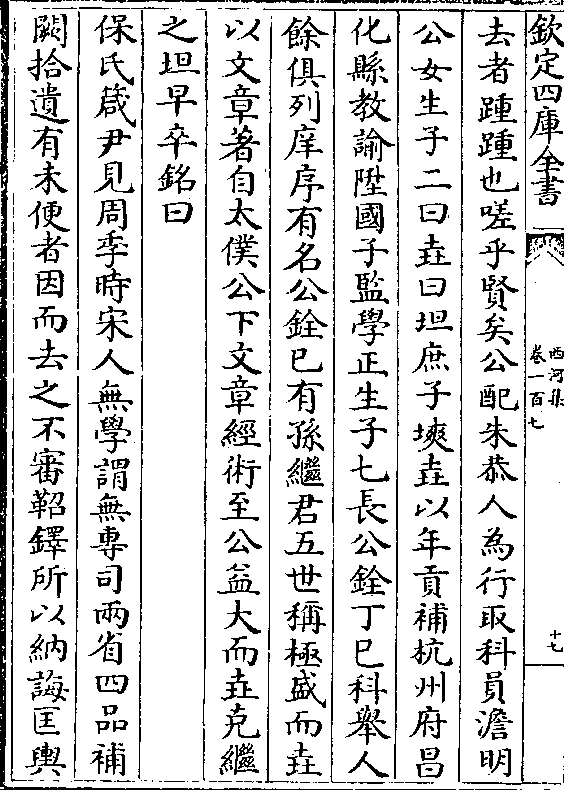 欽定四庫全書
西河集
卷一百七
十七
去者踵踵也嗟乎賢矣公配朱恭人為行取科員澹明
公女生子二曰壵曰坦庶子塽壵以年貢補杭州府昌
化縣教諭陞國子監學正生子七長公銓丁巳科舉人
餘俱列庠序有名公銓已有孫繼君五世稱極盛而壵
以文章著自太僕公下文章經術至公益大而壵克繼
之坦早卒銘曰
保氏箴尹見周季時宋人無學謂無專司兩省四品補
闕拾遺有未便者因而去之不審鞀鐸所以納誨匡輿